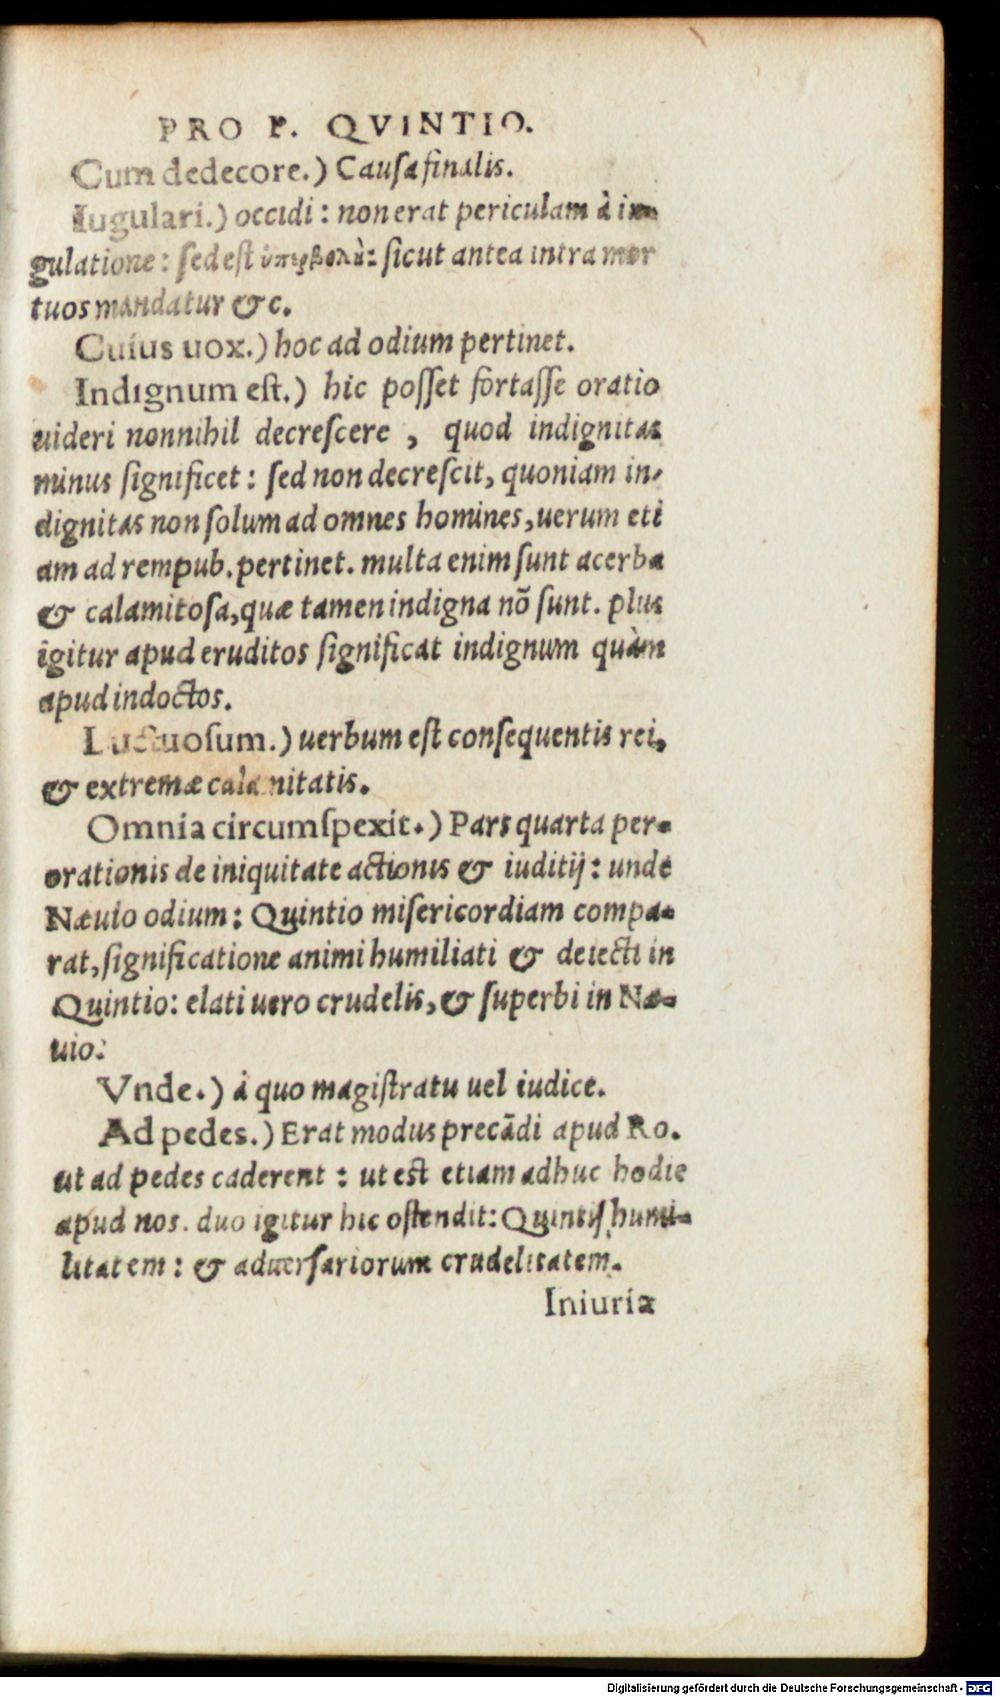 PRO P. QVINTIO.
Cum dedecore.) Cauſa finalis.
Iugulari.) occidi : non erat periculam à iu-
gulatione : ſed eſt ὑπερβολὴ: ſicut antea intra mor
tuos mandatur & c.
Cuius uox.) hoc ad odium pertinet.
Indignum eſt.) hic poſſet fortaſſe oratio
uideri nonnihil decreſcere , quod indignitas
minus ſignificet : ſed non decreſcit, quoniam in-
dignitas non ſolum ad omnes homines, uerum eti
am ad rempub. pertinet. multa enim ſunt acerba
& calamitoſa, quæ tamen indigna nõ ſunt. plus
igitur apud eruditos ſignificat indignum quàm
apud indoctos.
Luctuoſum.) uerbum eſt conſequentis rei,
& extremæ calamitatis.
Omnia circumſpexit.) Pars quarta per-
orationis de iniquitate actionis & iuditij : unde
Næuio odium : Quintio miſericordiam compa-
rat, ſignificatione animi humiliati & deiecti in
Quintio : elati uero crudelis, & ſuperbi in Næ-
uio.
Vnde.) à quo magiſtratu uel iudice.
Ad pedes.) Erat modus precãdi apud Ro.
ut ad pedes caderent : ut est etiam adhuc hodie
apud nos. duo igitur hic oſtendit : Quintij humi-
litatem : & aduerſariorum crudelitatem.
Iniuria
Digitalisierung gefördert durch die Deutsche Forschungsgemeinschaft - DFG